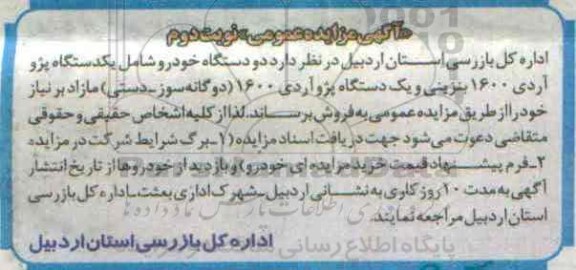 «آگهی مزایده عمومی» نوبت دوم
اداره کل بازرسی استان اردبیل در نظر دارد دو دستگاه خودرو شامل یکدستگاه پژو
آردی ۱۶۰۰ بنزینی و یک دستگاه پژو آردی ۱۶۰۰ (دوگانه سوز ـ دستی) مازاد بر نیاز
خود را از طریق مزایده عمومی به فروش برساند. لذا از کلیه اشخاص حقیقی و حقوقی
متقاضی دعوت می شود جهت دریافت اسناد مزایده (۱ـ برگ شرایط شرکت در مزایده
۲ـ فرم پیشنهاد قیمت خرید مزایده ای خودرو) و بازدید از خودروها از تاریخ انتشار
آگهی به مدت ۱۰ روز کاری به نشانی اردبیل ـ شهرک اداری بعثت ـ اداره کل بازرسی
استان اردبیل مراجعه نمایند.
اداره کل بازرسی استان اردبیل
پایگاه اطلاع رسانی